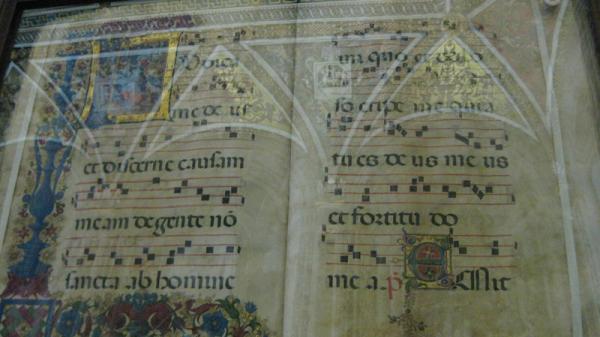 Iudica
me de us
et discerne causam
meam degente nō
sancta ab homine
iniquo et dolo
so eripe me quia
tu es de us me us
et fortitu do
me a. ps Emit